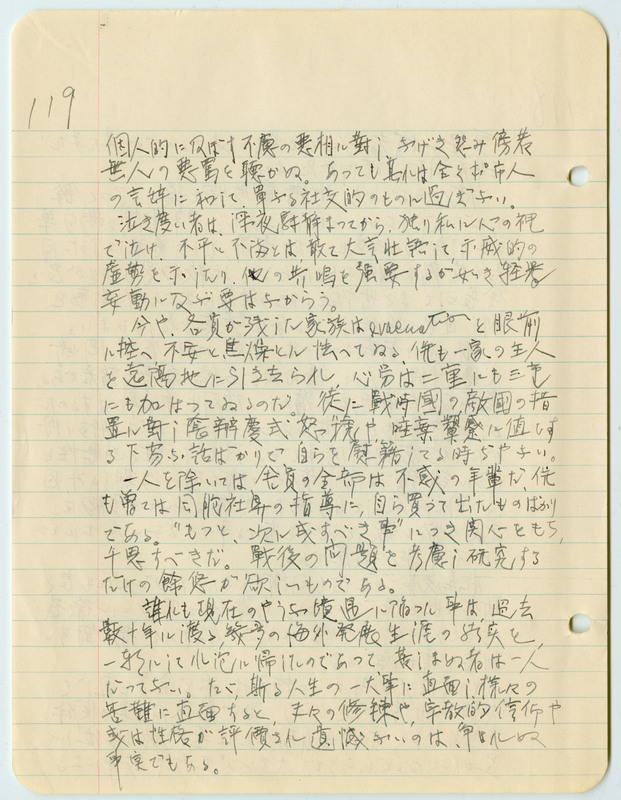 119
個人的に及ぼす不慮の悪相に對し、なげき怨み傍若
無人の悪罵を聴かぬ。あっても其れは全くお市人
の言辞に和して、單なる社交的のものに過ぎない。
泣き度い者は、深夜寝静まってから、独り私に心の裡
で泣け、不平と不満とは、敢て大言壮語して、示威的の
虚勢を示したり、他の共鳴を強要するが如き軽挙
妄動に及ぶ要はなからう。
今や、各員が残した家族はevacuationを眼前
に控へ不安と焦燥とに怯へてゐる、併も一家の主人
を遠隔地に引き去られ、心労は二重にも三重
にも加はってゐるのだ。徒に戦時國の敵國の措
置に對し陰辨慶式怒
下劣な話ばかりで自らを慰籍してる時ぢゃない。
一人を除いては全員の全部は不惑の年輩だ、併
も曽ては同胞社界の指導に、自ら買って出たものばかり
である。"もっと、次に或すべき事"につき関心をもち、
千思すべきだ。戦後の問題を考慮し研究する
だけの餘悠が欲しいものである。
誰れも現在のやうな境遇に陥った事は、過去
数十年に渡る海外発展生涯の結実を、
一朝にして水泡に帰したのであって、哀しまぬ者は一人
だってない。たゞ、斯る人生の一大事に直面し、様々の
苦難に直面すると、夫々の修練や、宗教的信仰や
或は性格が評價され遺憾ないのは、争はれぬ
事実でもある。